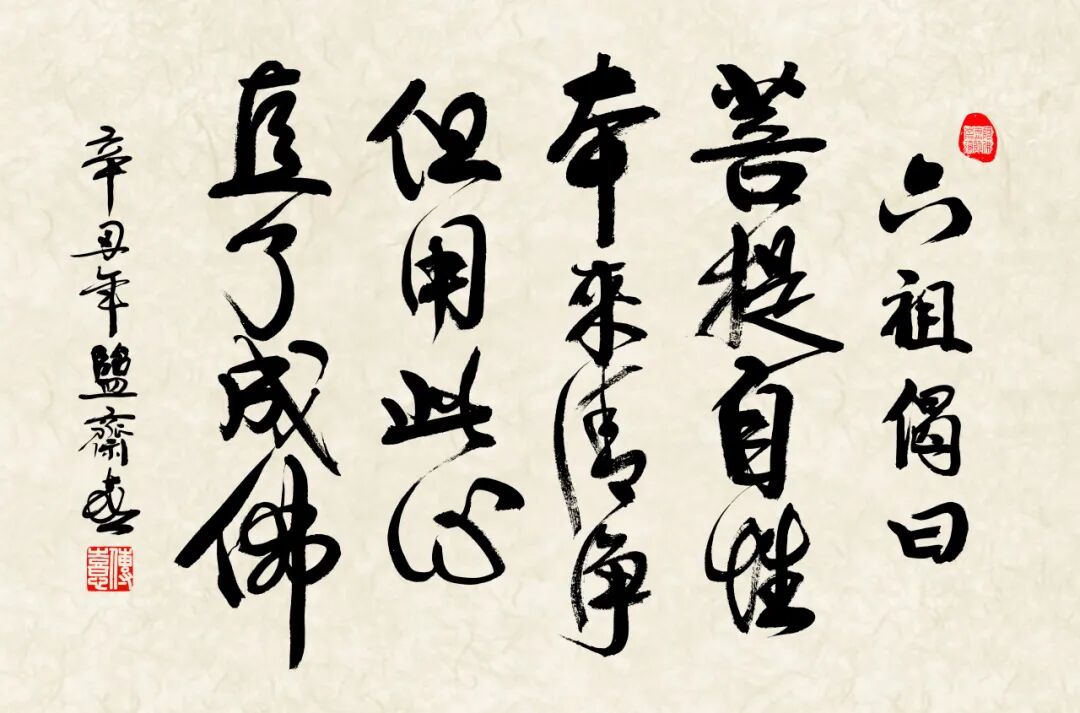 六祖偈曰
菩提自性
本來清净
但用此心
直了成佛
辛丑年齋